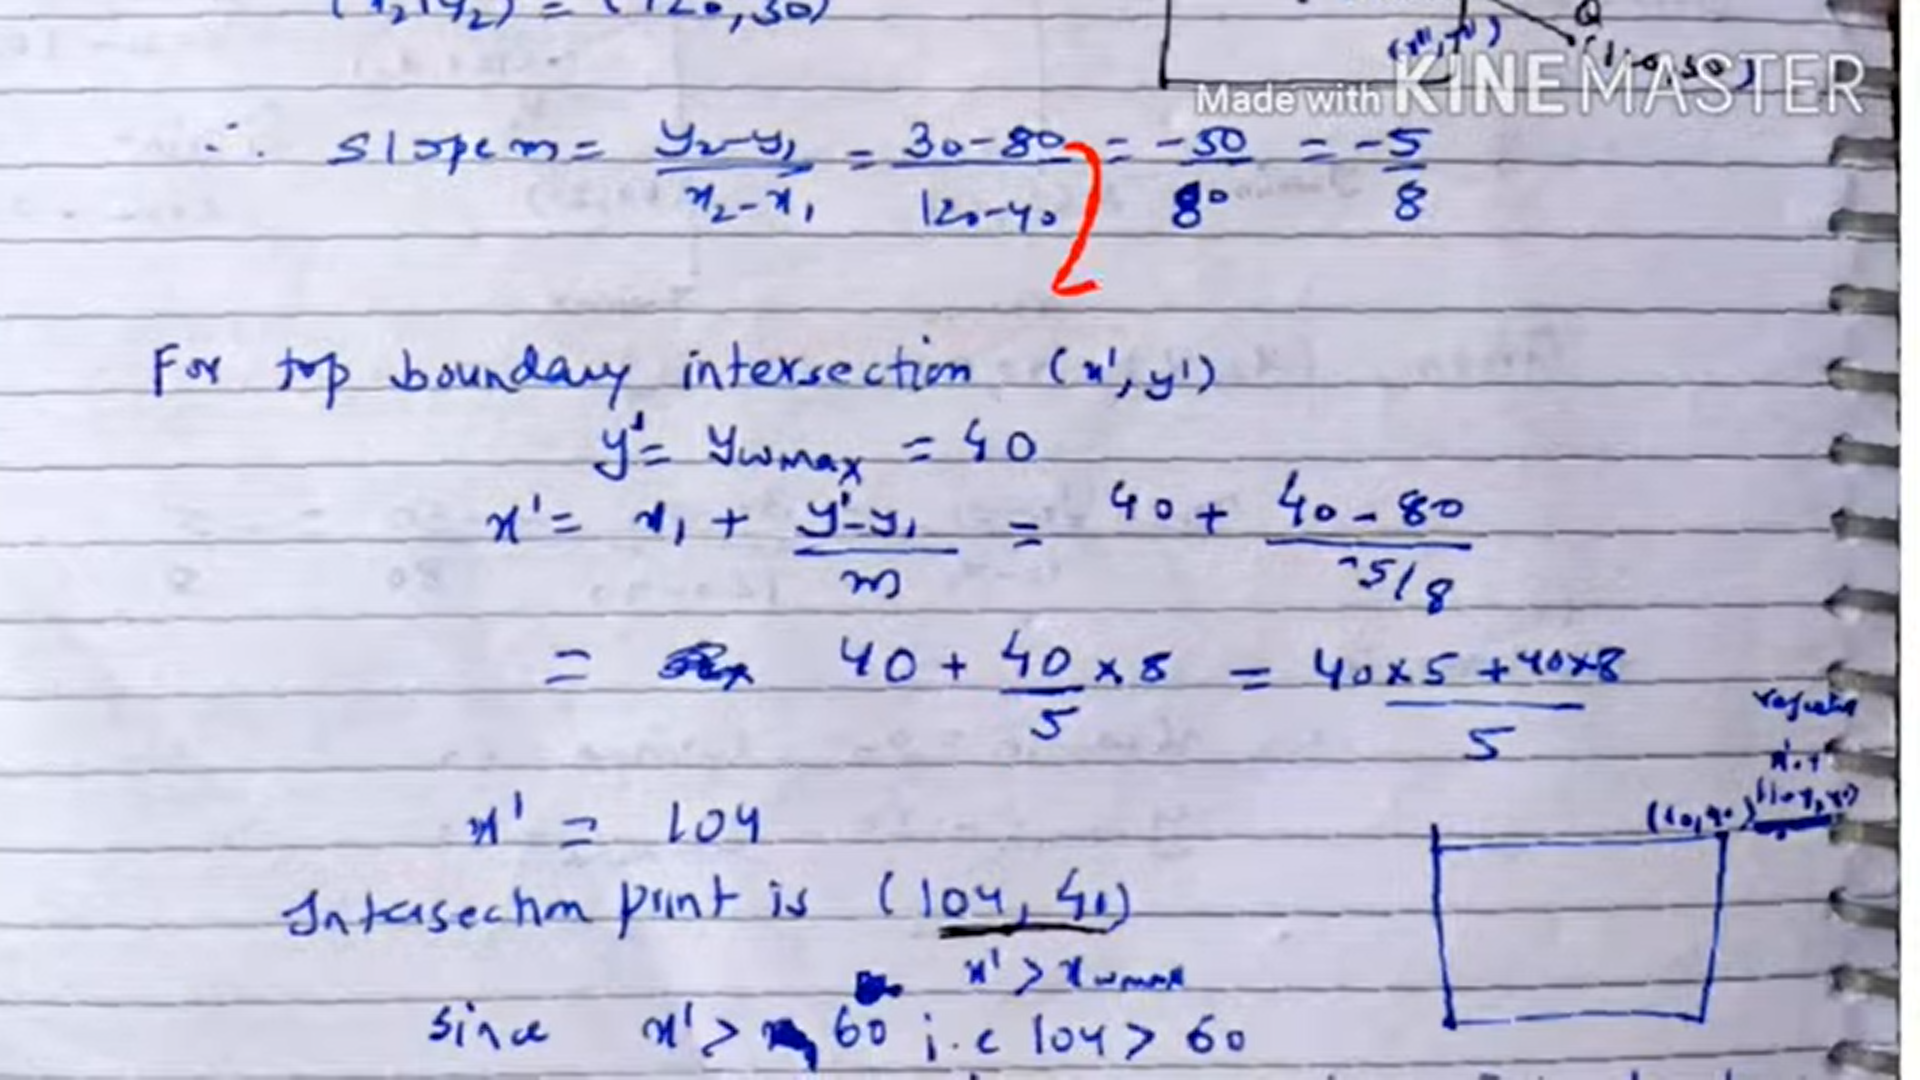 (x₂, y₂) = (120, 30)
Q
(x'', y'')
Made with KINEMASTER
∴ Slope m = y₂-y₁/x₂-x₁ = 30-80/120-40 = -50/80 = -5/8
For top boundary intersection (x', y')
y' = ywmax = 40
x' = x₁ + y'-y₁/m = 40 + 40-80/-5/8
= 40 + 40/5 × 8 = 40×5 + 40×8/5
x' = 104
Intersection point is (104, 40)
x' > xwmax
Since x' > 60 i.e 104 > 60